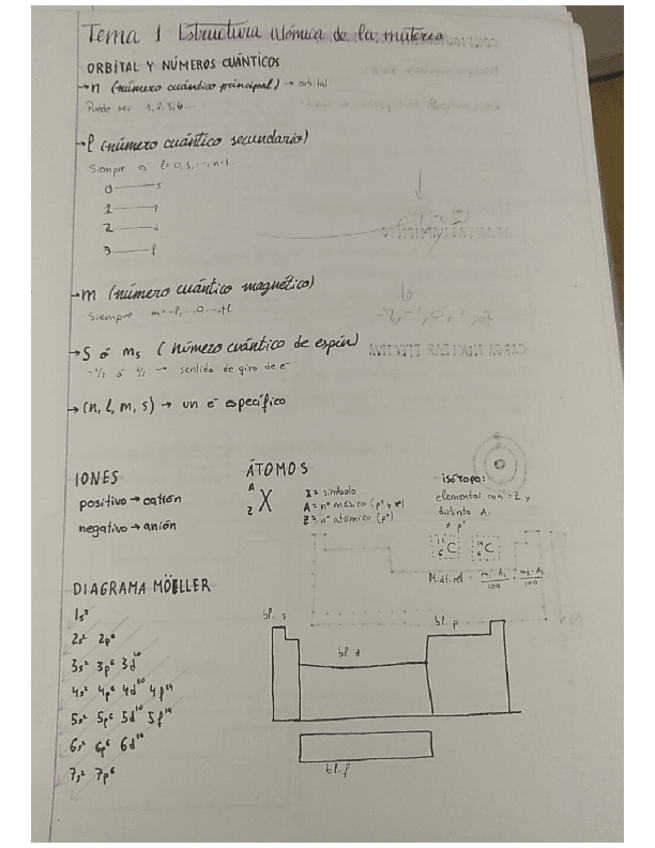 Tema 1 Estructura atómica de la materia
ORBITAL Y NÚMEROS CUÁNTICOS
→ n (número cuántico principal) → orbital
Puede ser 1, 2, 3, 4...
→ l (número cuántico secundario)
Siempre es l = 0, 1, ..., n-1
0 — s
1 — p
2 — d
3 — f
→ m (número cuántico magnético)
Siempre m = -l, ...0..., +l
→ S ó ms (número cuántico de espín)
-1/2 ó 1/2 → sentido de giro de e⁻
→ (n, l, m, s) → un e⁻ específico
IONES
positivo → catión
negativo → anión
ÁTOMOS
A
Z X
X = símbolo
A = nº másico (p⁺ y n)
Z = nº atómico (p⁺)
isótopo:
elementos con = Z y
distinto A.
¹²₆C ¹⁴₆C
M.at.rel = m₁·A₁/100 + m₂·A₂/100
DIAGRAMA MÖELLER
1s²
2s² 2p⁶
3s² 3p⁶ 3d¹⁰
4s² 4p⁶ 4d¹⁰ 4f¹⁴
5s² 5p⁶ 5d¹⁰ 5f¹⁴
6s² 6p⁶ 6d¹⁰
7s² 7p⁶
bl. s
bl. d
bl. p
bl. f